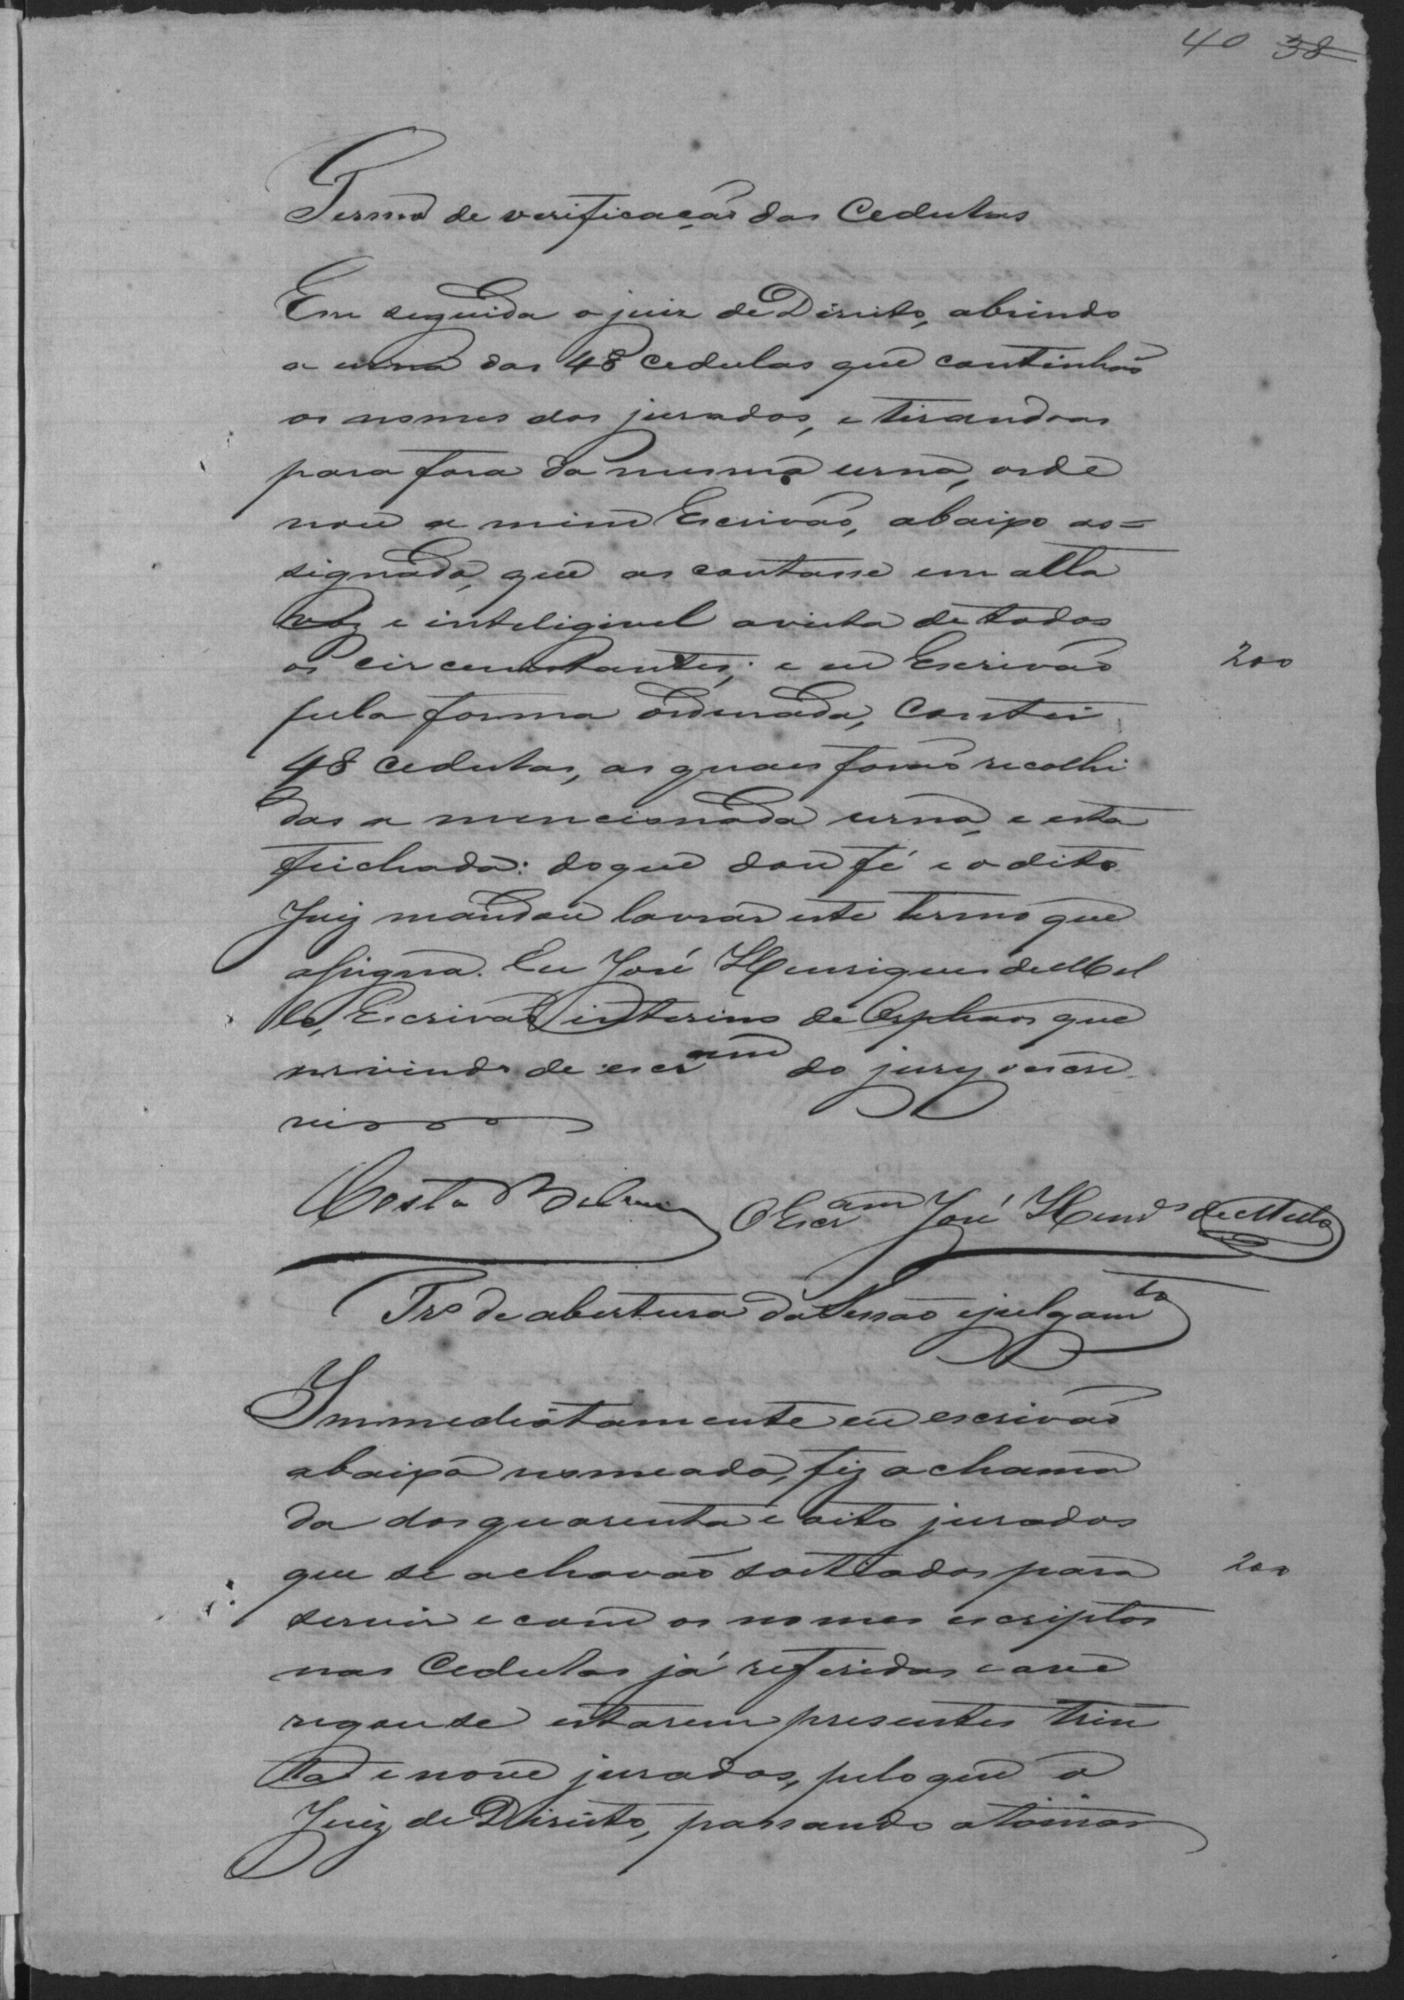 40 38
Termo de verificação das Cedulas
Em seguida o juiz de Direito, abrindo
a urna das 48 cedulas que continhão
os nomes dos jurados, e tirandoas
para fora da mesma urna, orde
nou a mim Escrivão, abaixo as=
signado, que as contasse em alta
voz e inteligivel a vista de todos
os circunstantes; e eu Escrivão
200
pela forma ordenada, contei
48 cedulas, as quaes forão recolhi
das a mencionada urna, e esta
feichada: do que dou fé e o dito
Juiz mandou lavrar este termo que
assigna. Eu José Henriques de Mel
lo, Escrivão interino de Orphaos que
servindo de escram do jury o escre
vi
Costa O Escram José Henrs de Mello
Tro de abertura da Sessão e julgamto
Immediatamente eu escrivão
abaixo nomeado, fiz a chama
da dos quarenta e oito jurados
que se achavão sorteados para
200
servir e com os nomes escriptos
nas Cedulas já referidas e ave
rigouse estarem presentes trin
ta e nove jurados, pelo que o
Juiz de Direito, passando a tomar